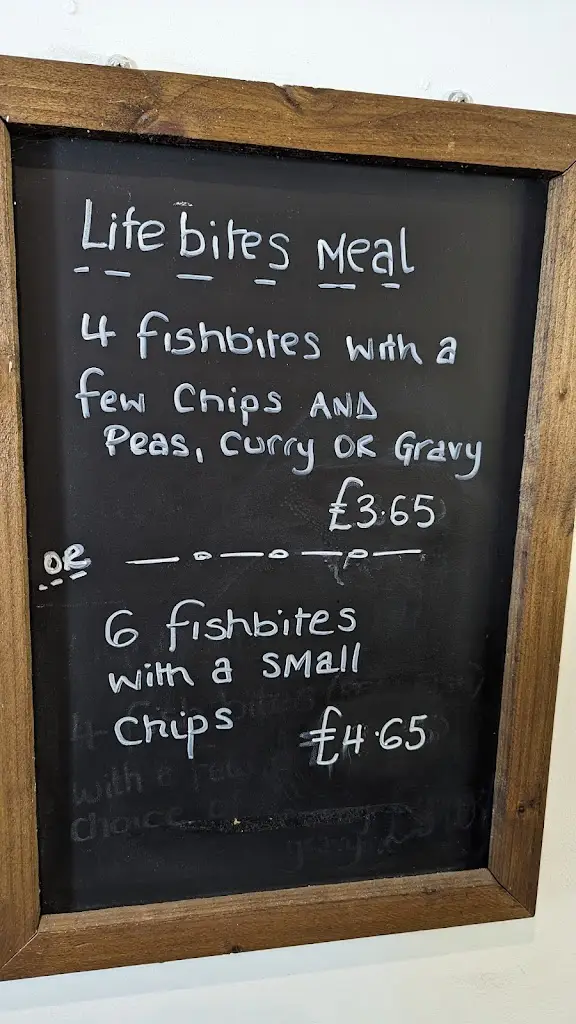 Life bites Meal
4 fishbites with a
few Chips AND
Peas, Curry OR Gravy
£3.65
OR
6 fishbites
with a small
Chips
£4.65
with a few
choice